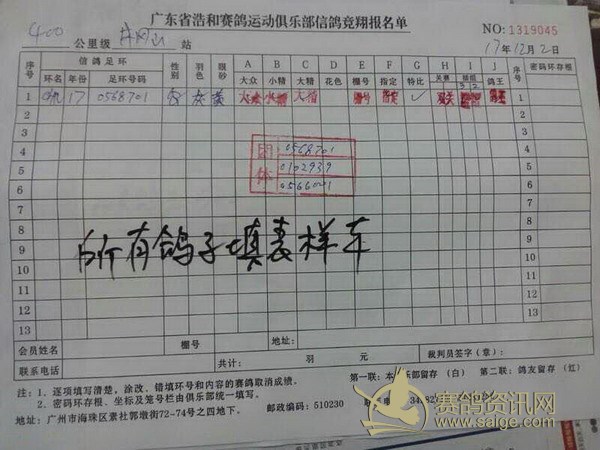 广东省浩和赛鸽运动俱乐部信鸽竞翔报名单
NO: 1319045
400 公里级 井冈山 站
17年12月2日
序号 信鸽足环 性别 羽色 眼砂 A B C D E F G H I J 序号 密码环存根
环名 年份 足环号码 大众 小精 大精 花色 棚号 指定 特比 鸽王
1 17 0568701 灰 黄 大众 小精 大精 棚号 指定 1
2 2
3 3
4 团体 0568701 4
5 0102939 5
6 6
7 7
8 8
9 所有鸽子填表样车 9
10 10
11 11
12 12
13 13
会员姓名 棚号 地址:
联系电话 共计: 羽 元 裁判员签字(章):
第一联:本俱乐部留存(白) 第二联:鸽友留存(红)
注:1、逐项填写清楚,涂改、错填环号和内容的赛鸽取消成绩。
2、密码环存根、坐标及笼号栏由俱乐部统一填写。
地址:广州市海珠区素社郭墩街72-74号之四地下。 邮政编码:510230
赛鸽资讯网
www.saige.com